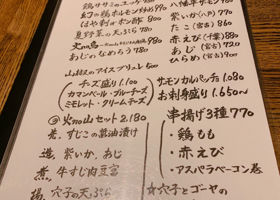 鶏ササミのユッケ
幻の鶏ホルモン炒め 990
はや刺 or ポン酢 800
夏野菜の天ぷら 780
あじのなめろう 780
山路のアイスブリュレ 500
チーズ盛り 1.100
カマンベール・ブルーチーズ
ミモレット・クリームチーズ
◎ 火の山セット 2.180
煮. すじこの醤油漬け
造. 紫いか、あじ
煮. 牛すじ肉豆富
揚. 穴子の天ぷら
八幡平サーモン
紫いか (八戸) 770
たこ (宮古) 860
赤えび (千葉) 880
あじ (宮古) 720
ひらめ (宮古) 900
サーモンカルパッチョ 1.080
お刺身盛り 1.650〜
串揚げ3種 770
・鶏もも
・赤えび
・アスパラベーコン巻
☆穴子とゴーヤの